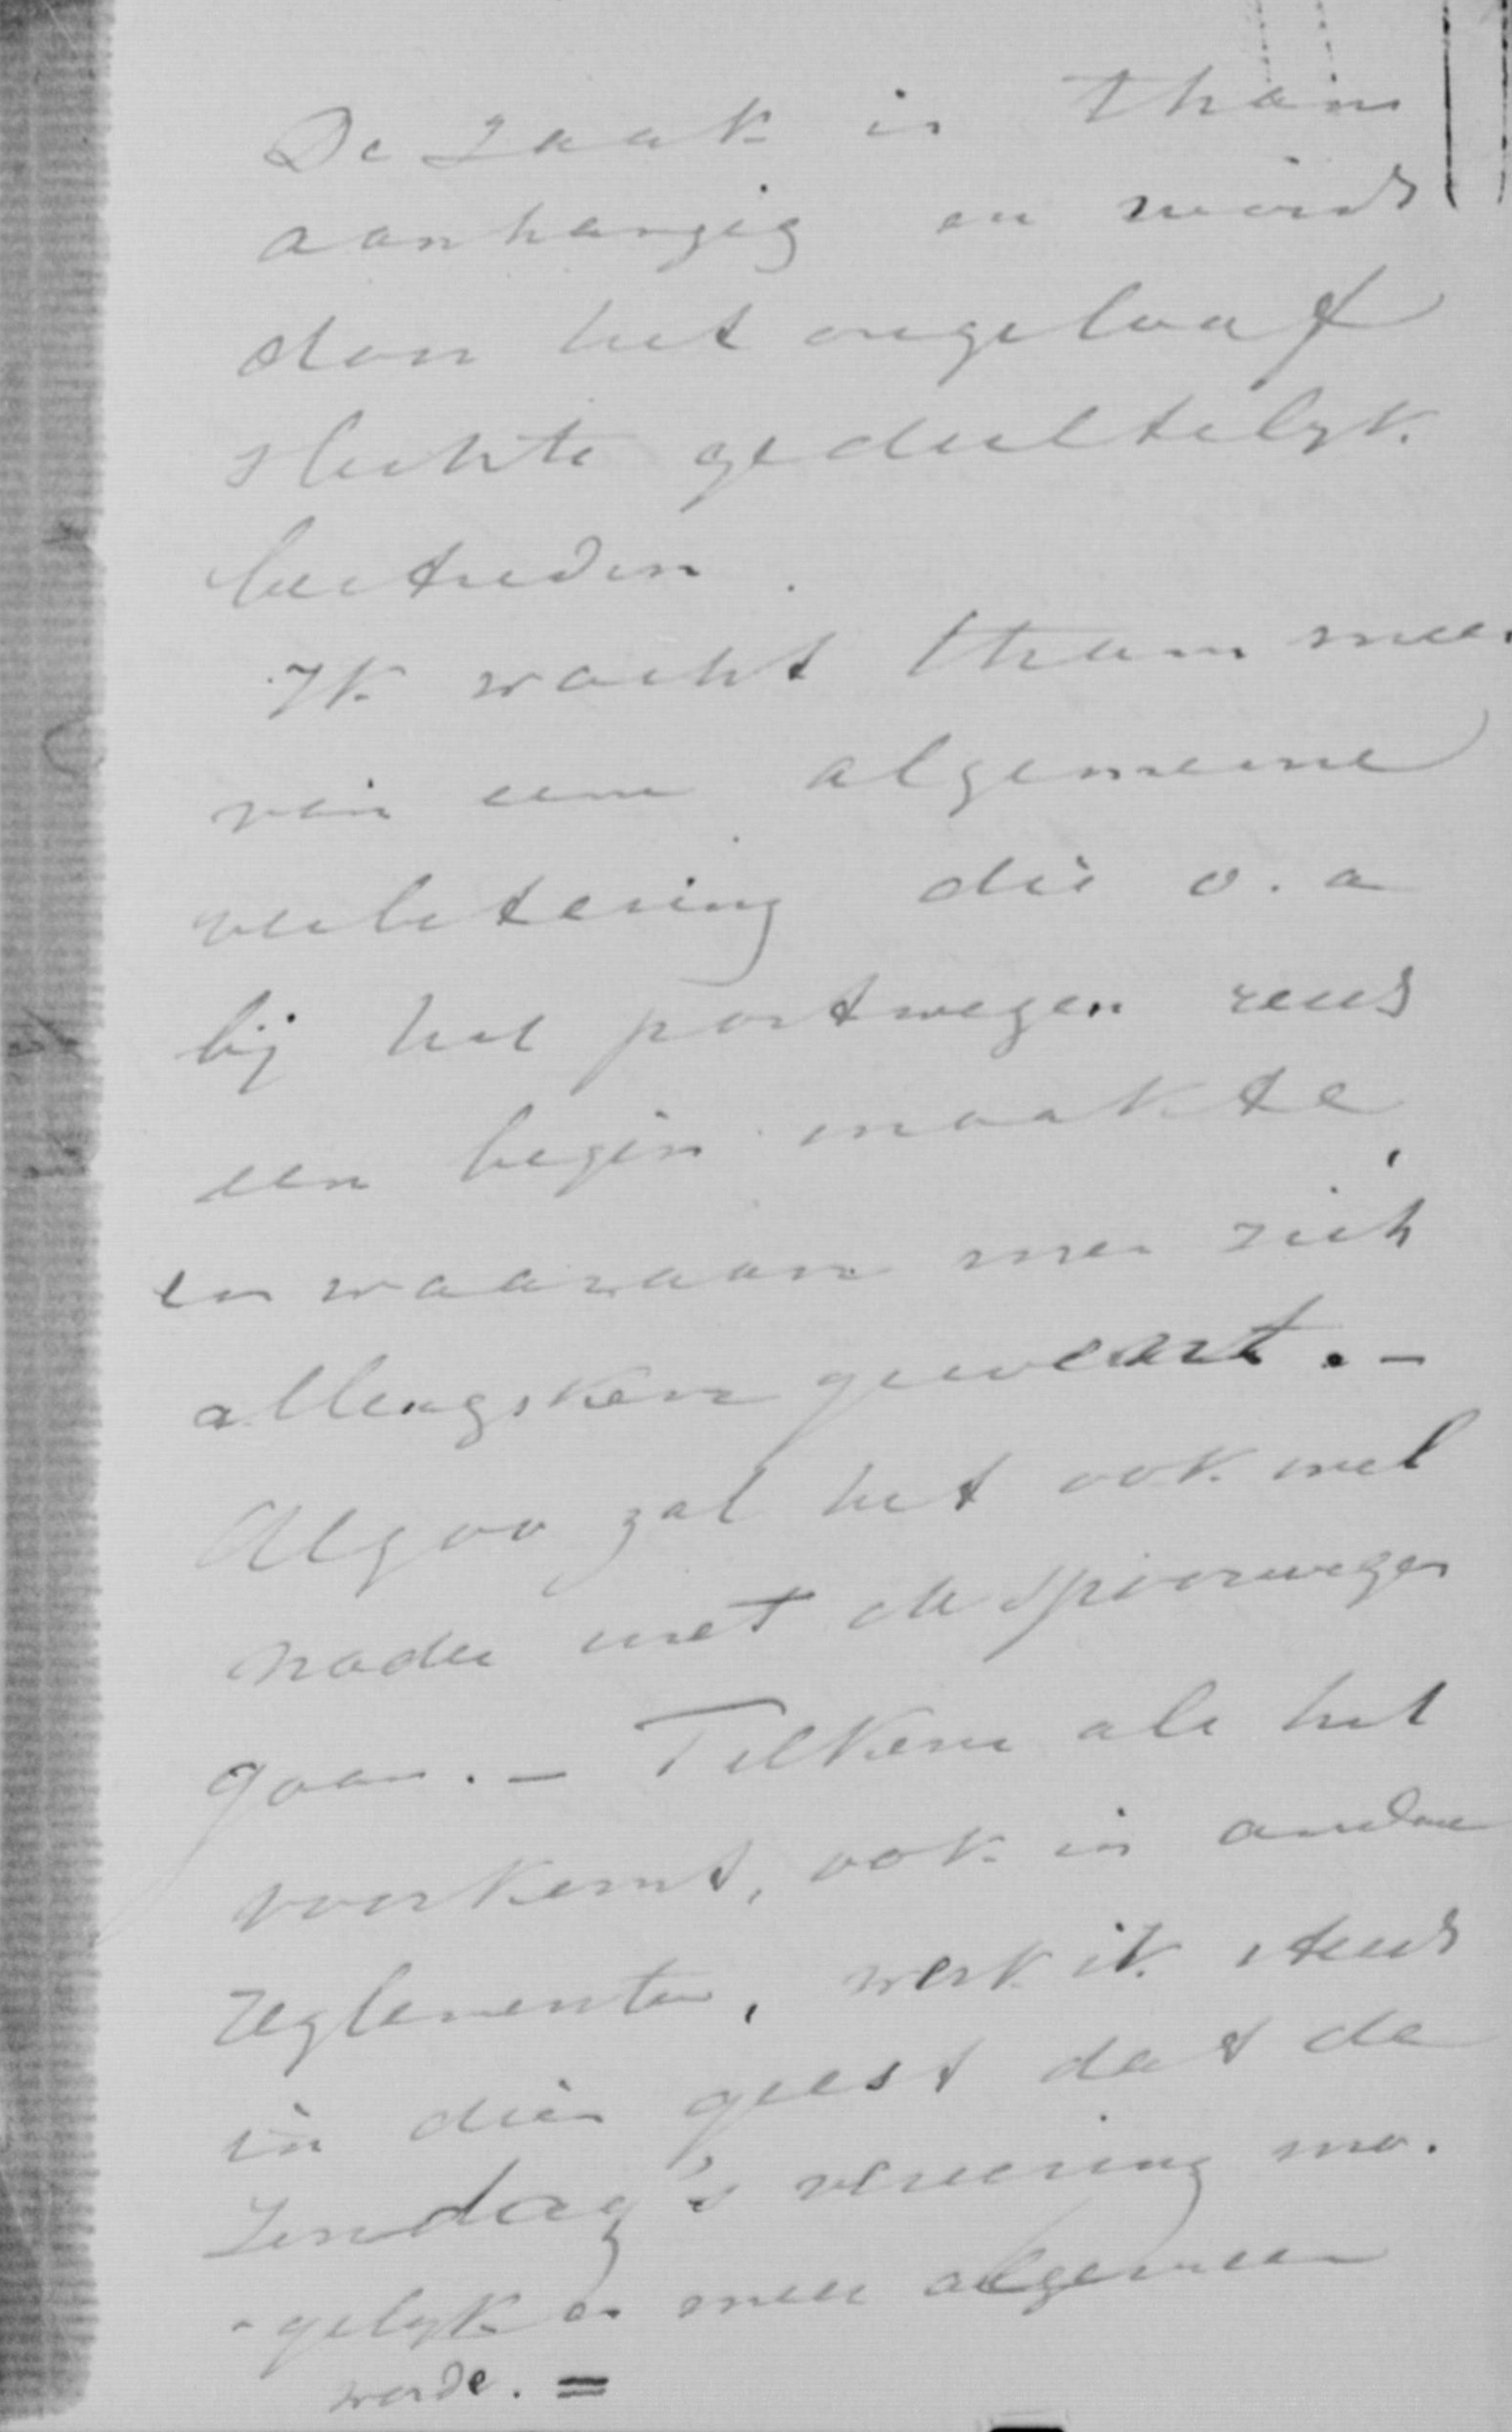 De zaak is thans
aanhangig en wordt
door het ongeloof
slechts gedeeltelyk
bestreden.
Ik wacht thans meer
van eene algemeene
verbetering die o.a
bij het postwegen reeds
een begin maakte,
en waaraan men zich
allengskens gewent. -
Alzoo zal het ook wel
nader met de spoorwegen
gaan. - Telkens als het
voorkomt, ook in andere
reglementen, werk ik steeds
in dien geest dat de
Zondag's viering mo.
-gelyk en meer algemeen
worde. =